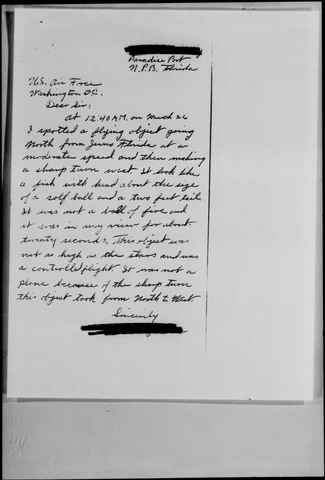 Paradise Port
N.P.B. Florida
U.S. Air Force
Washington D.C.
Dear Sir:
at 12:40 A.M. on March 26
I spotted a flying object going
North from Juno Florida at a
moderate speed and then making
a sharp turn west. It look like
a fish with head about the size
of a golf ball and a two feet tail.
It was not a ball of fire and
it was in my view for about
twenty seconds. This object was
not as high as the stars and was
a controlled flight. It was not a
plane because of the sharp turn
this object took from North to West.
Sincerely